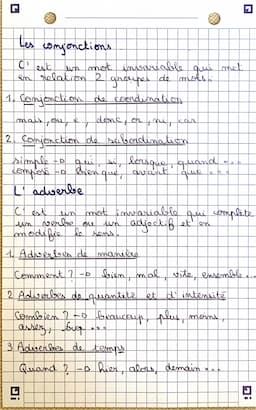 Les conjonctions
C'est un mot invariable qui met
en relation 2 groupes de mots.
1. Conjonction de coordination
mais, ou, e, donc, or, ni, car
2. Conjonction de subordination
simple → qui, si, lorsque, quand ...
composé → bien que, avant que ...
L'adverbe
C'est un mot invariable qui complète
un verbe ou un adjectif et en
modifie le sens.
1. Adverbes de manière
Comment ? → bien, mal, vite, ensemble ...
2 Adverbes de quantité et d'intensité
Combien ? → beaucoup, plus, moins,
assez, ...
3 Adverbes de temps
Quand ? → hier, alors, demain ...